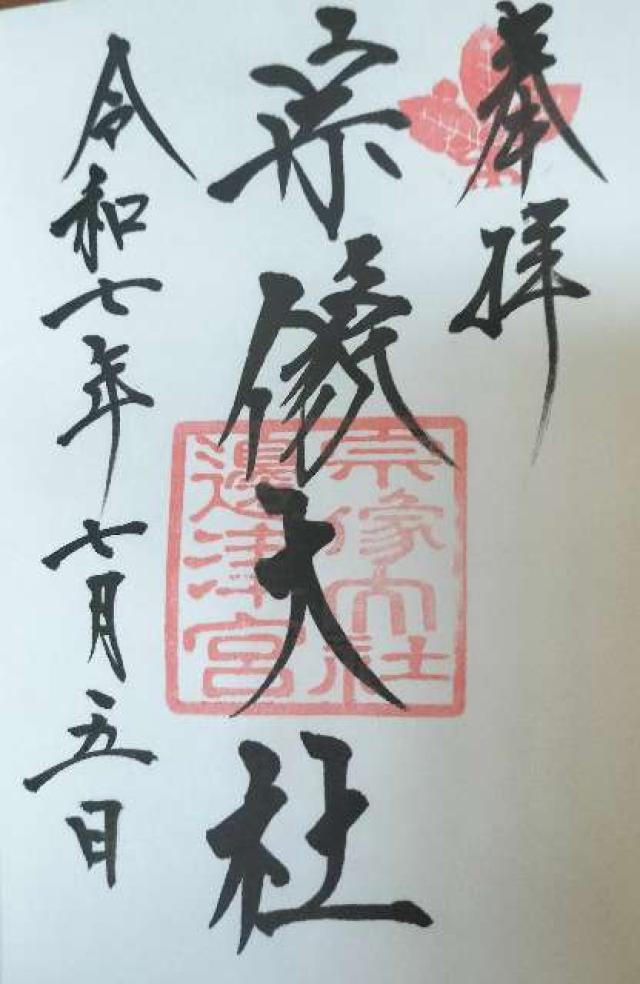 奉拝
宗像大社
宗像大社
邊津宮
令和七年七月五日